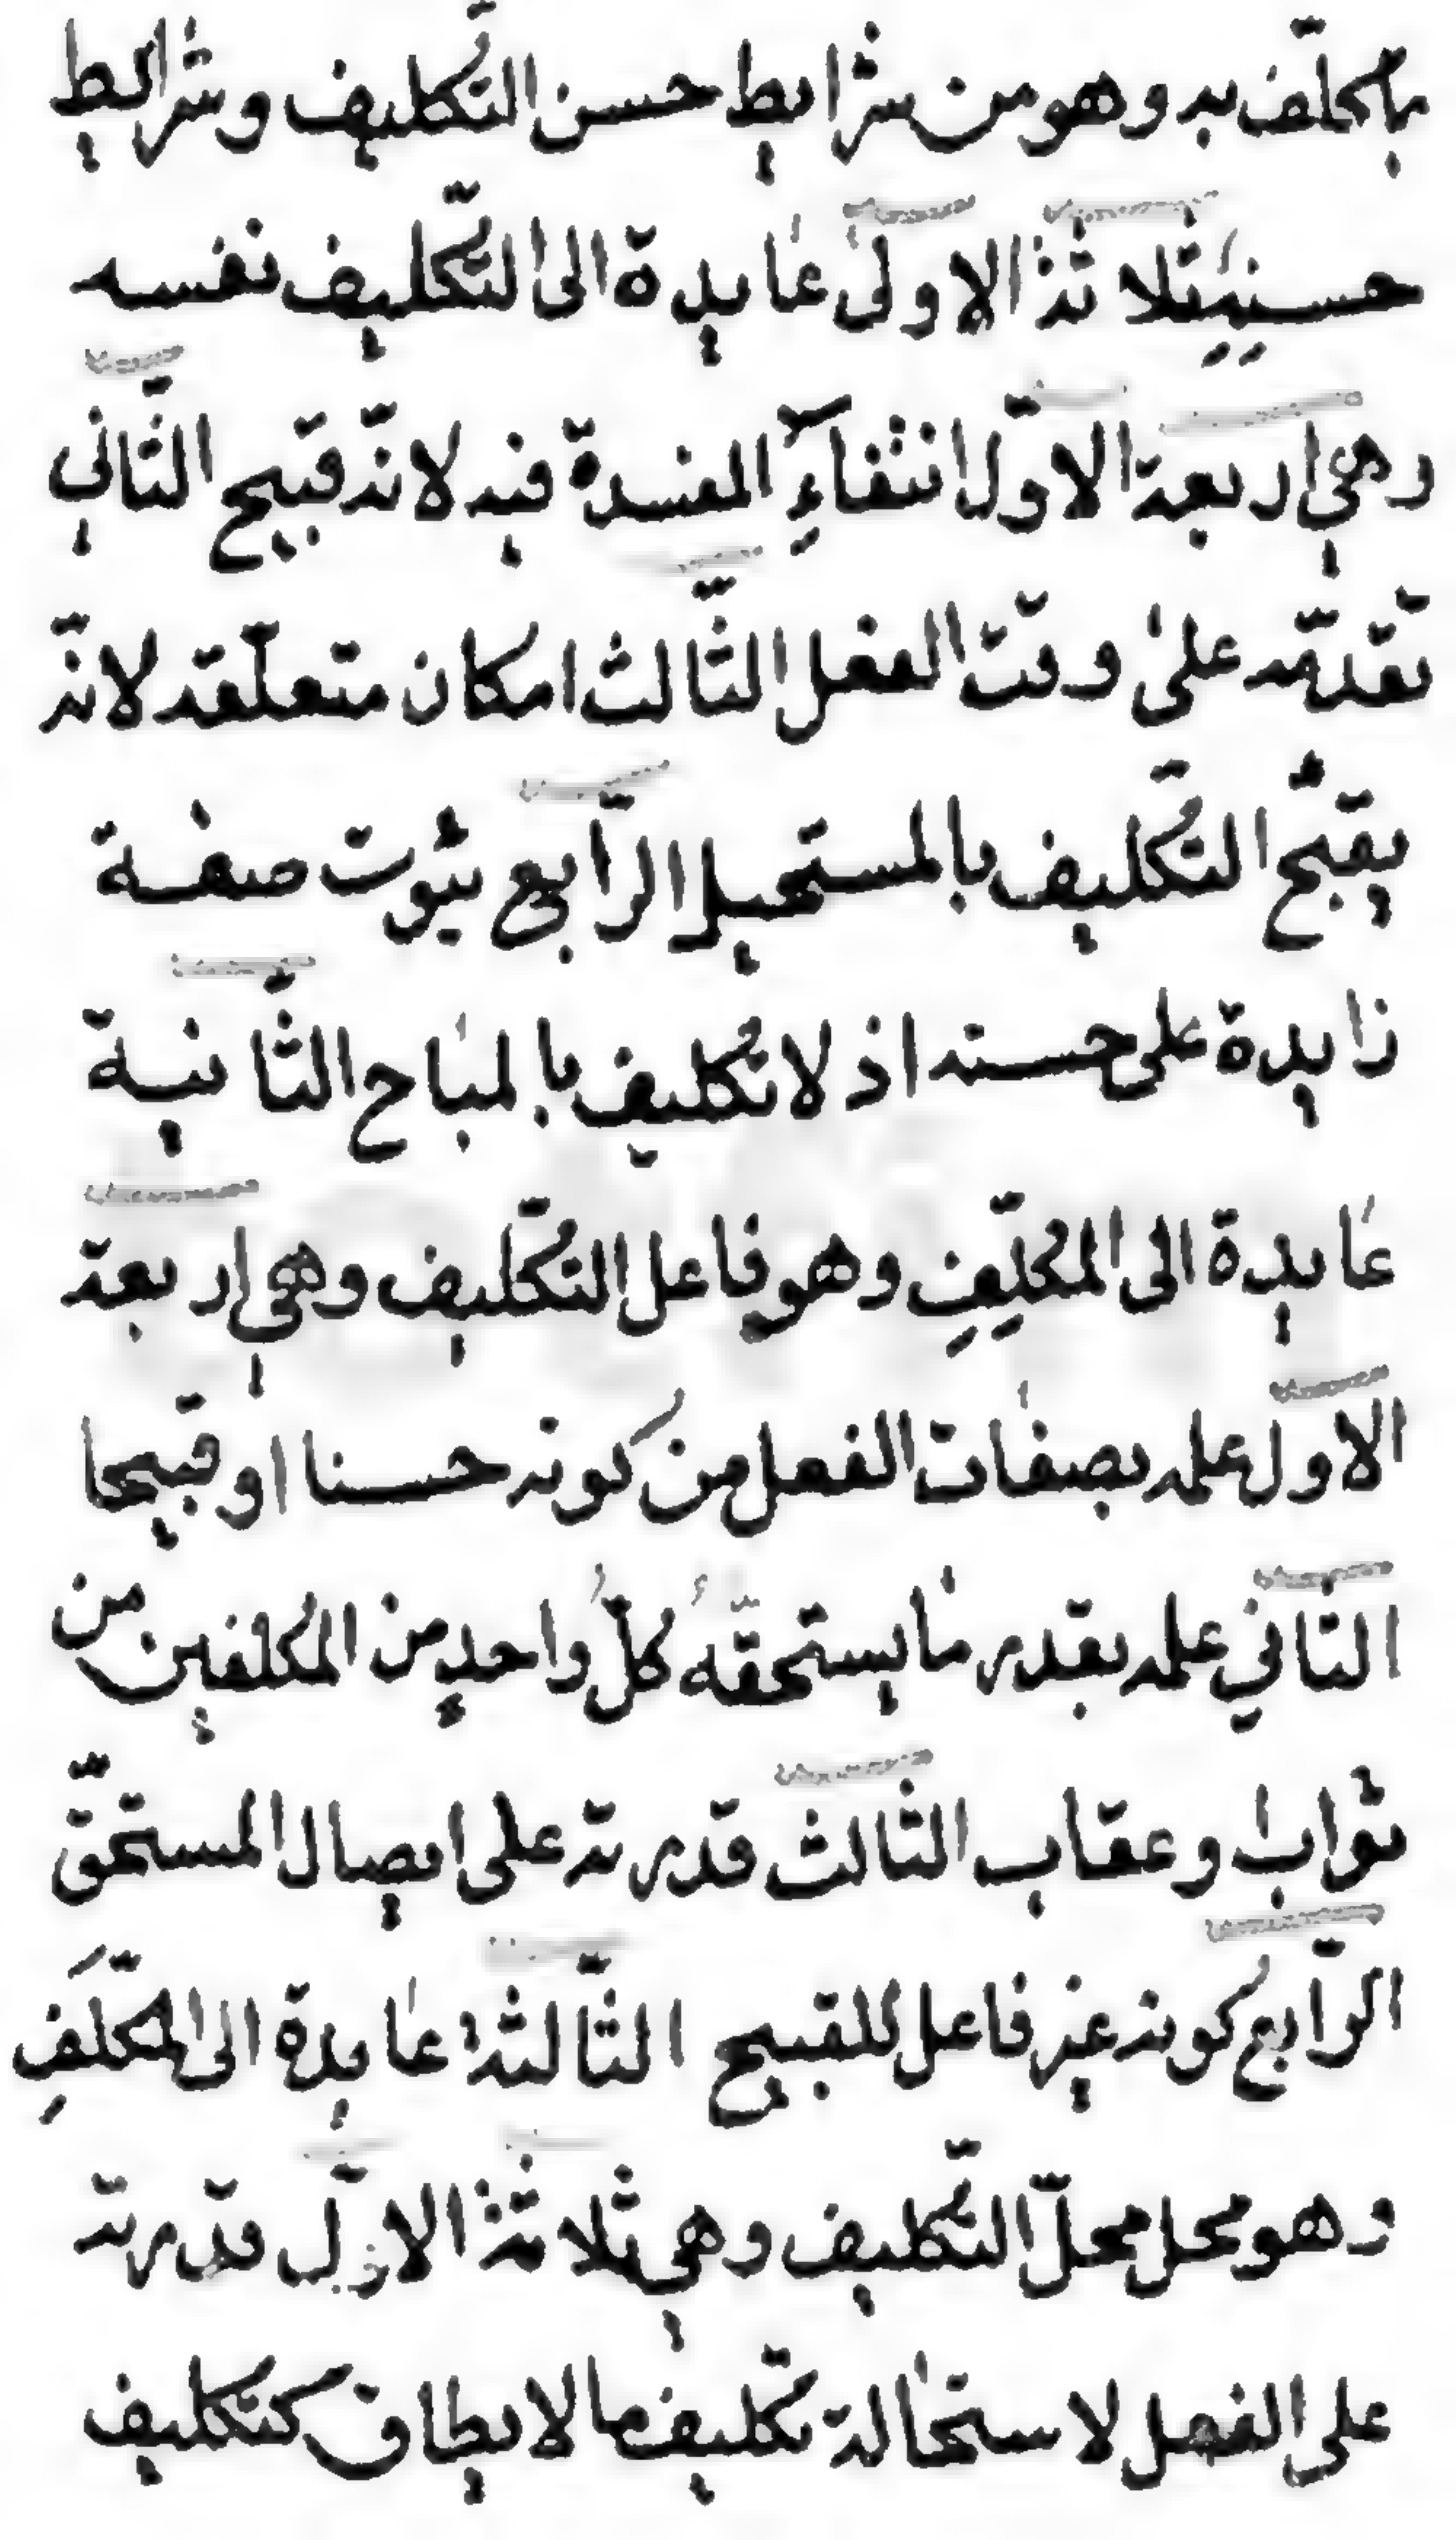 بما كلّف به وهو من شرايط حسن التّكليف وشرايط
حسنه ثلاثة الاولى عايدة الى التّكليف نفسه
وهي اربعة الاوّل انتفآءِ المفسدة فيه لانّه قبيح الثّاني
تقدّمه على وقت الفعل الثّالث امكان متعلّقه لانّه
يقبّح التّكليف بالمستحيل الرّابع ثبوت صفة
زايدة على حسنه اذ لا تكليف بالمباح الثّانية
عايدة الى المكلِّفِ وهو فاعل التّكليف وهي اربعة
الاول علمه بصفات الفعل من كونه حسنا او قبيحا
الثاني علمه بقدر ما يستحقّهُ كلُّ واحدٍ من المكلفين من
ثواب وعقاب الثالث قدرته على ايصال المستحقّ
الرّابع كونه غير فاعل للقبيح الثّالثة عايدة الى المكلَّفِ
وهو محل محلّ التّكليف وهي ثلاثة الاوّل قدرته
على الفعل لاستحالة تكليف ما لا يطاق كتكليف